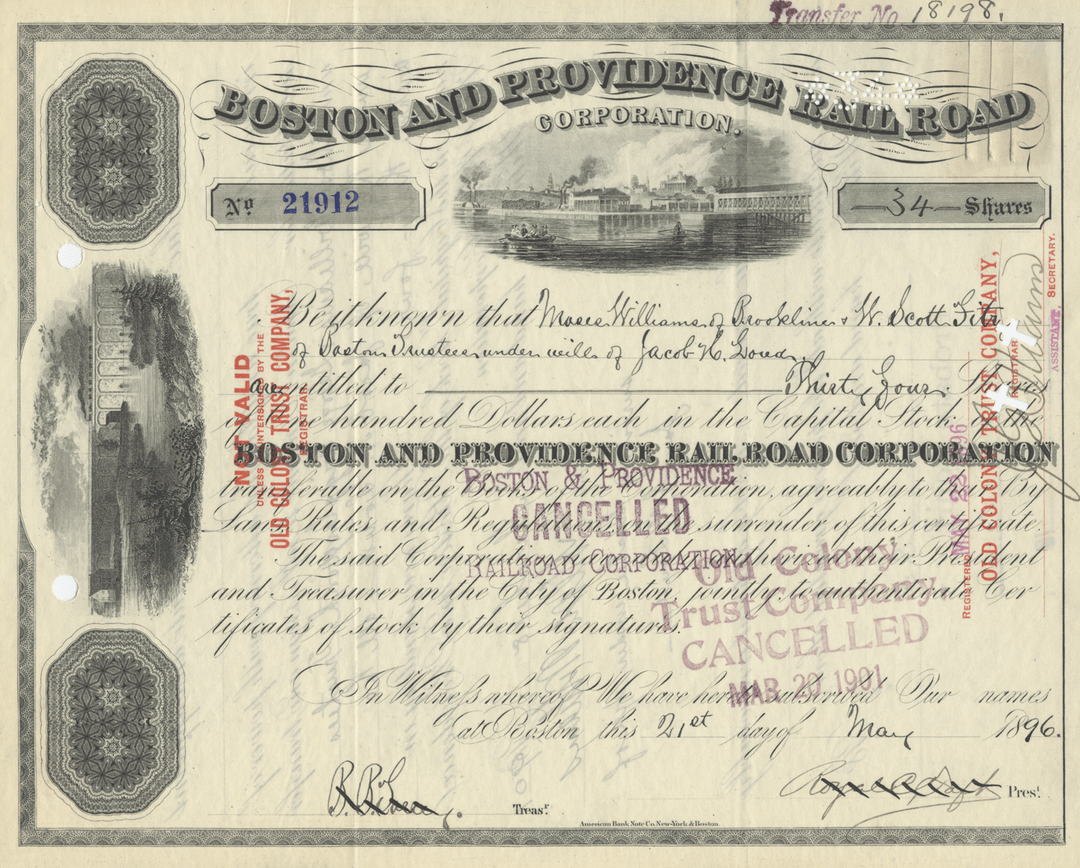 Transfer No 18198.
BOSTON AND PROVIDENCE RAIL ROAD
CORPORATION.
No 21912
34 Shares
Be it known that Moses Williams of Brookline & W. Scott Fitz
of Boston Trustees under will of Jacob H.
are entitled to Thirty four Shares
of One hundred Dollars each in the Capital Stock of the
BOSTON AND PROVIDENCE RAIL ROAD CORPORATION
transferable on the Books of the Corporation, agreeably to the By
Laws, Rules, and Regulations, on the surrender of this certificate.
The said Corporation have authorized their President
and Treasurer in the City of Boston, jointly to authenticate Cer
tificates of stock by their signatures.
In Witness whereof We have hereto subscribed Our names
at Boston this 21st day of May 1896.
Treasr.
Prest.
American Bank Note Co. New-York & Boston.
NOT VALID
UNLESS COUNTERSIGNED BY THE
OLD COLONY TRUST COMPANY,
REGISTRAR.
BOSTON & PROVIDENCE
CANCELLED
RAILROAD CORPORATION.
Old Colony
Trust Company
CANCELLED
MAR 20 1901
REGISTERED MAY 23 1896
OLD COLONY TRUST COMPANY,
REGISTRAR
ASSISTANT SECRETARY.